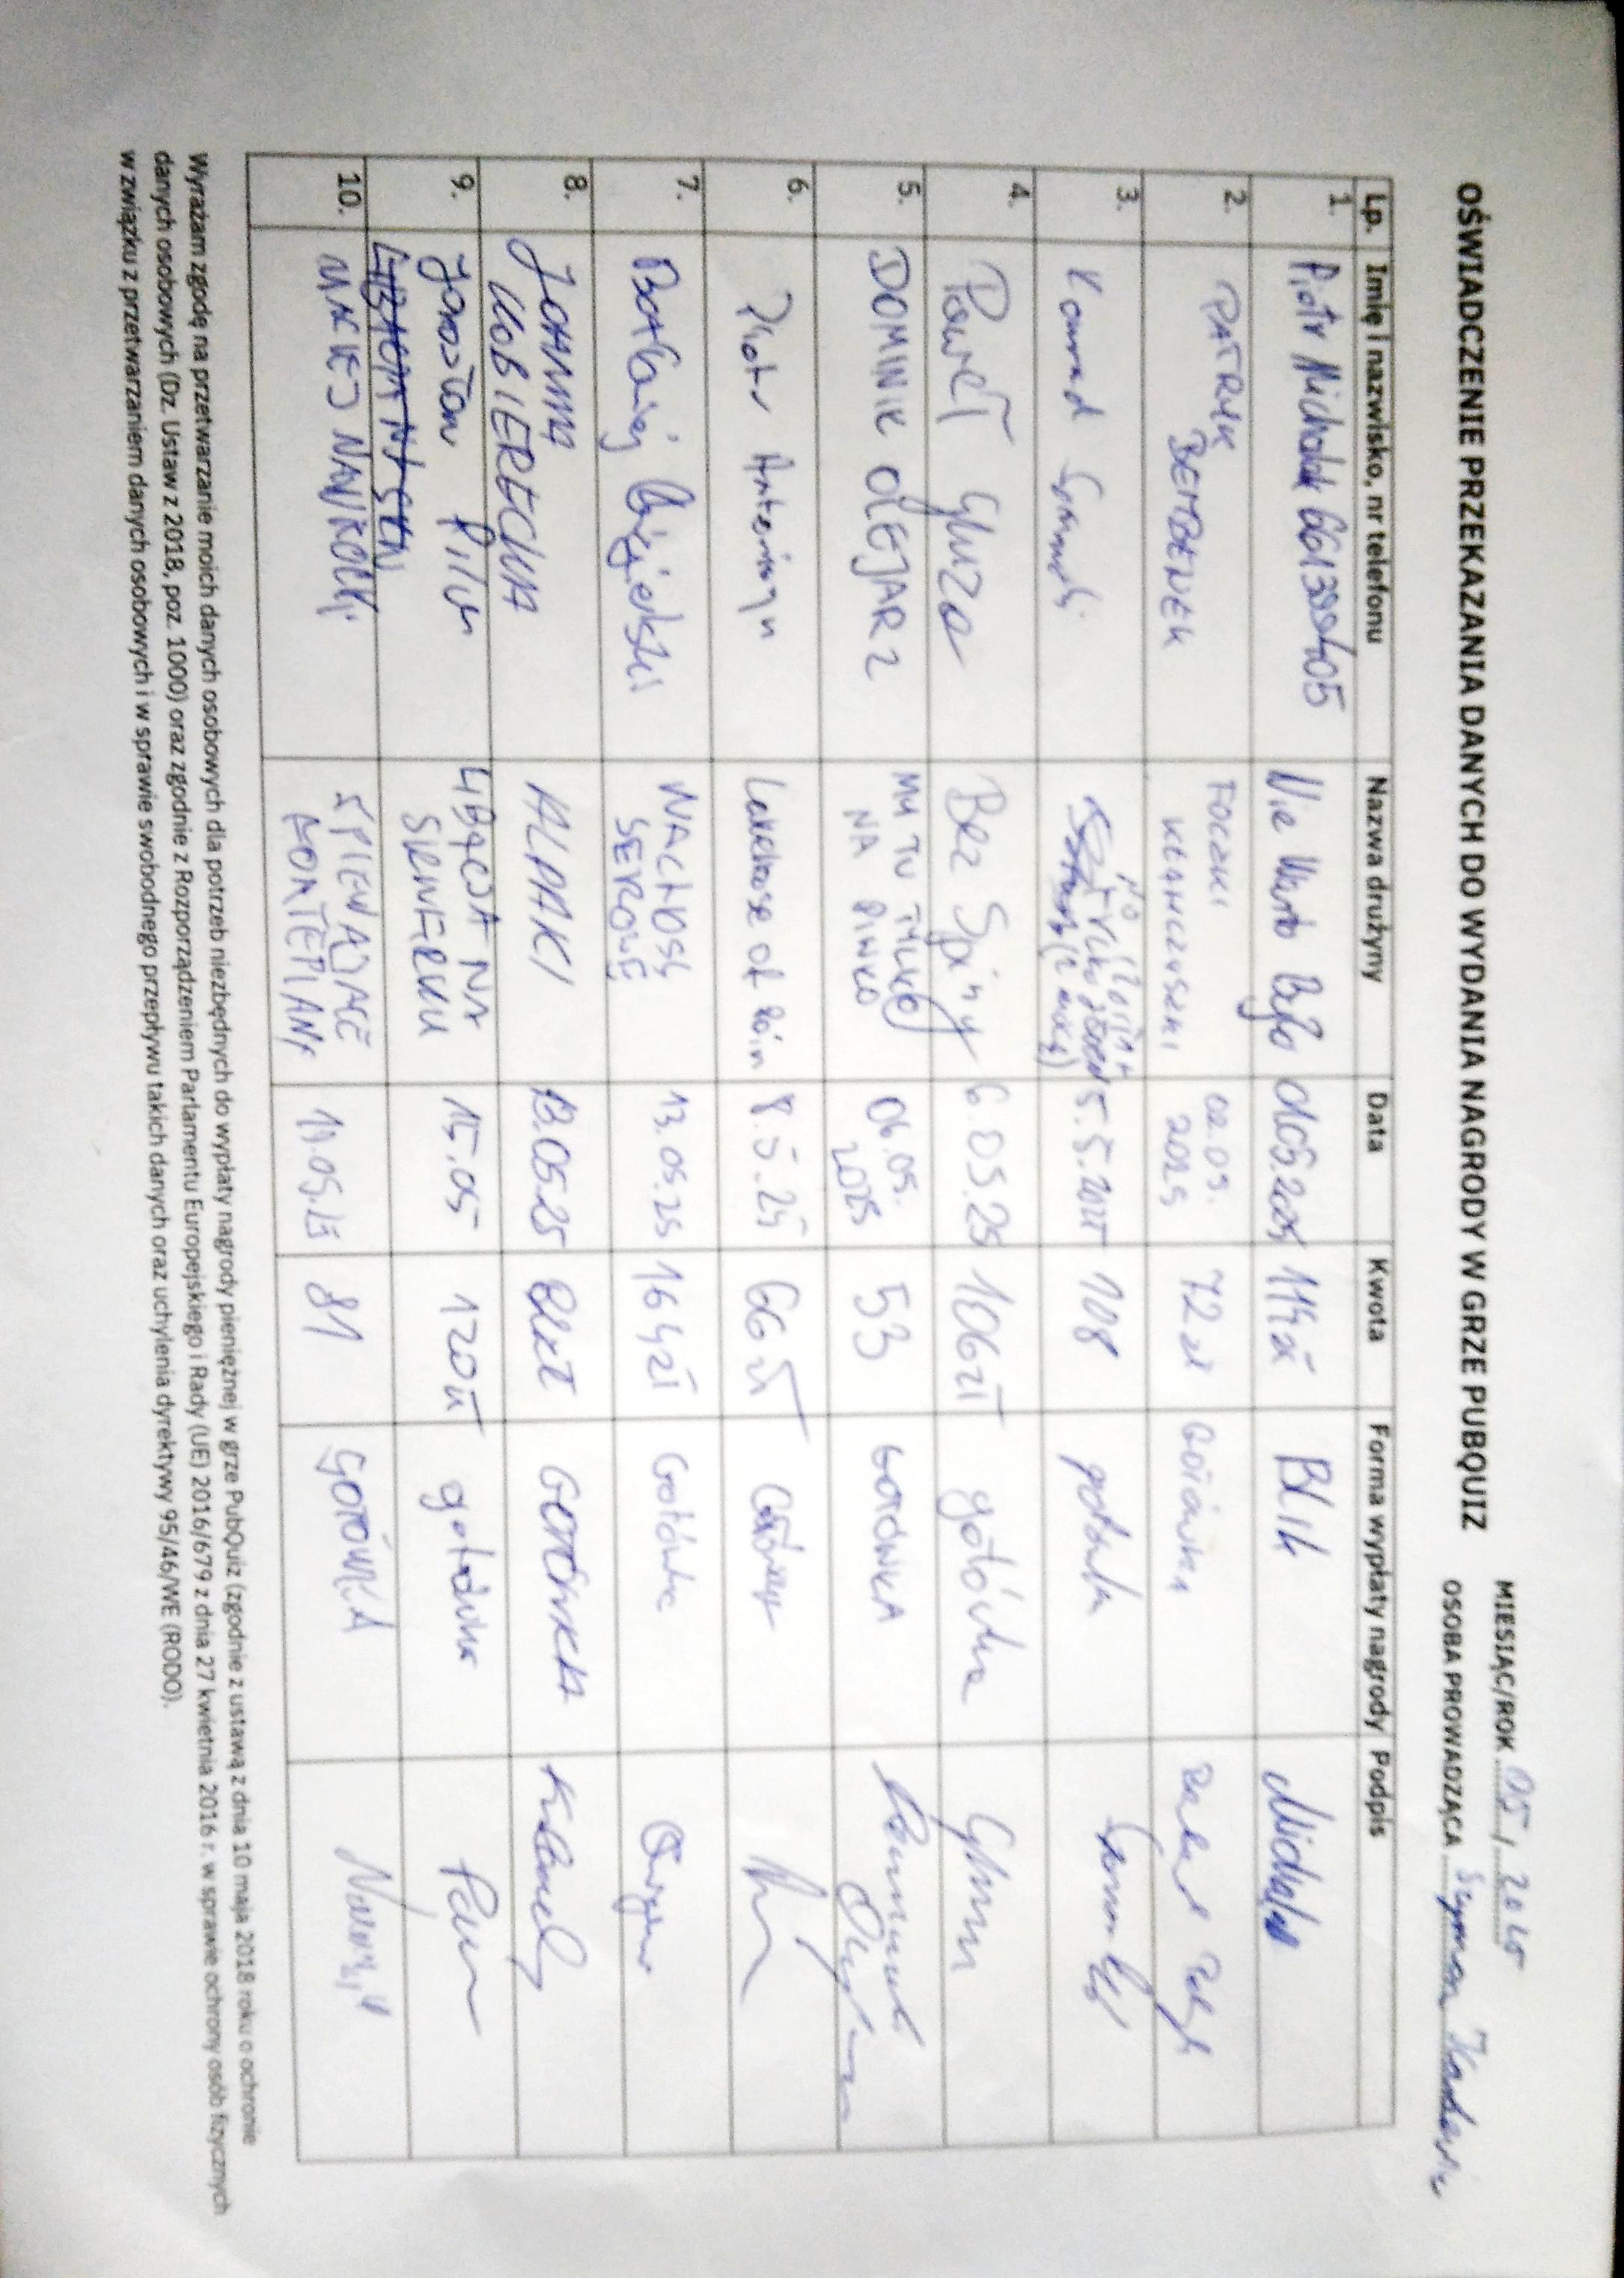 OŚWIADCZENIE PRZEKAZANIA DANYCH DO WYDANIA NAGRODY W GRZE PUBQUIZ
MIESIĄC/ROK 05, 2025
OSOBA PROWADZĄCA Szymon
Lp. Imię i nazwisko, nr telefonu Nazwa drużyny Data Kwota Forma wypłaty nagrody Podpis
1. Piotr Michalak Nie Warto Było 114 zł BLIK Michalak
2. PATRYK BEMBENEK FOCZKI KŁAMCZUSZKI 02.05.2025 72 zł GOTÓWKA
3. Konrad 5.5.2025 108 gotówka
4. Paweł Gluza Bez Spiny 6.05.25 106zł gotówka Gluza
5. DOMINIK OLEJARZ MY TU TYLKO NA PIWKO 06.05.2025 53 GOTÓWKA Dominik Olejarz
6. Piotr 8.5.25 66 zł Gotówka
7. Bartłomiej WAŻNE SEROWE 13.05.25 164zł Gotówka
8. JOANNA KOBIERECKA ALPAKI 13.05.25 GOTÓWKA
9. Jarosław LIBACJA NA SKWERKU 15.05 120zł gotówka
10. MACIEJ NAWROCKI ŚPIEWAJĄCE FORTEPIANY 19.05.25 81 GOTÓWKA
Wyrażam zgodę na przetwarzanie moich danych osobowych dla potrzeb niezbędnych do wypłaty nagrody pieniężnej w grze PubQuiz (zgodnie z ustawą z dnia 10 maja 2018 roku o ochronie
danych osobowych (Dz. Ustaw z 2018, poz. 1000) oraz zgodnie z Rozporządzeniem Parlamentu Europejskiego i Rady (UE) 2016/679 z dnia 27 kwietnia 2016 r. w sprawie ochrony osób fizycznych
w związku z przetwarzaniem danych osobowych i w sprawie swobodnego przepływu takich danych oraz uchylenia dyrektywy 95/46/WE (RODO).